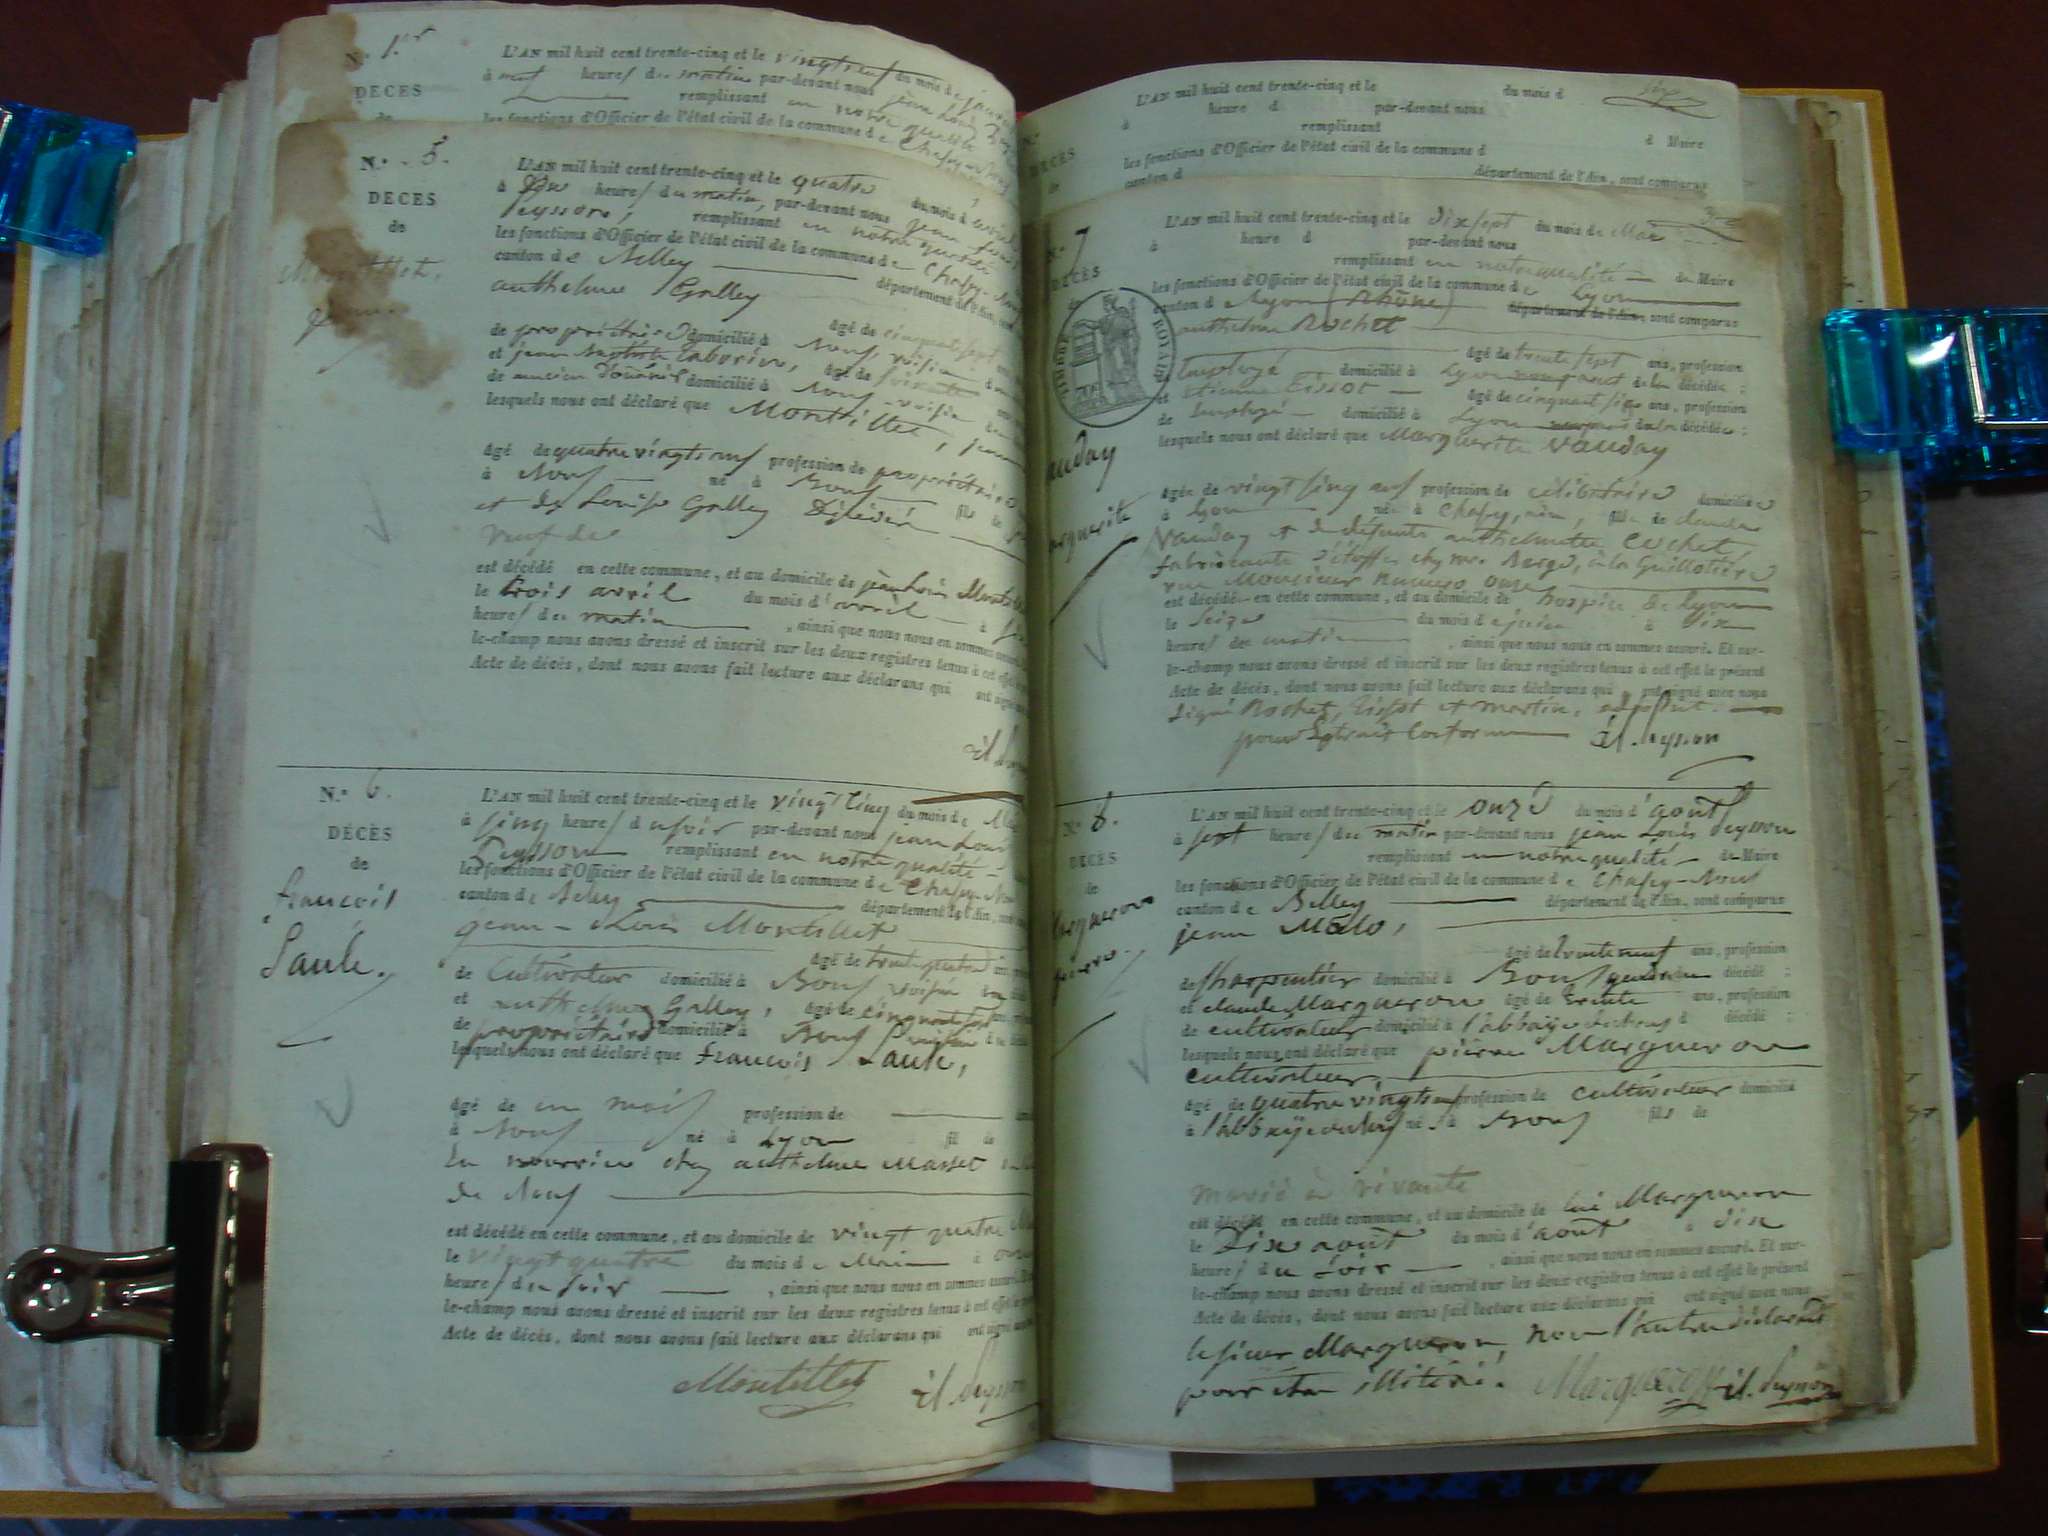 N.° 1.er
DECES
de
L'AN mil huit cent trente-cinq et le vingt neuf du mois de
à neuf heures du matin par-devant nous jean Louis
remplissant en notre qualité
les fonctions d'Officier de l'état civil de la commune de Chasey
N.° 5.
DECES
de
Montillet,
L'AN mil huit cent trente-cinq et le quatre du mois d'avril
à heures du matin, par-devant nous jean Louis
Peysson, remplissant en notre qualité
les fonctions d'Officier de l'état civil de la commune de Chasey-
canton de Belley département de l'Ain,
anthelme Galley
âgé de cinquante sept
de propriétaire domicilié à Bons, voisin
et jean Baptiste âgé de soixante
de ancien Douanier domicilié à Bons voisin
lesquels nous ont déclaré que Montillet,
âgé de quatre vingt neuf profession de propriétaire
à Bons né à Bons fils de
et de Louise Galley
veuf de
est décédé en cette commune, et au domicile de jean Louis
le trois avril du mois d'avril à
heures du matin , ainsi que nous nous en sommes
le-champ nous avons dressé et inscrit sur les deux registres tenus à cet effet
Acte de décès, dont nous avons fait lecture aux déclarans qui ont signé
N.° 6.
DÉCÈS
de
françois
Paule.
L'AN mil huit cent trente-cinq et le vingt cinq du mois de
à cinq heures du soir par-devant nous jean Louis
Peysson remplissant en notre qualité
les fonctions d'Officier de l'état civil de la commune de Chasey-
canton de Belley département de l'Ain,
jean-Louis Montillet
âgé de trente quatre
de Cultivateur domicilié à Bons voisin
et anthelme Galley, âgé de cinquante sept
de propriétaire domicilié à Bons
lesquels nous ont déclaré que françois Paule,
âgé de un mois profession de
à Bons né à Lyon fil de
En nourrice chez anthelme Masset
de Bons
est décédé en cette commune, et au domicile de vingt quatre
le vingt quatre du mois de Mai à
heures du soir , ainsi que nous nous en sommes assuré.
le-champ nous avons dressé et inscrit sur les deux registres tenus à cet effet
Acte de décès, dont nous avons fait lecture aux déclarans qui ont signé
Montillet jl. Peysson
L'AN mil huit cent trente-cinq et le du mois d
à heure d par-devant nous
remplissant d Maire
DÉCÈS
de
les fonctions d'Officier de l'état civil de la commune d
canton d département de l'Ain, sont comparus
N.° 7
DÉCÈS
de
Vauday
Marguerite
TIMBRE ROYAL
L'AN mil huit cent trente-cinq et le dix sept du mois de Mai
à heure d par-devant nous
remplissant en notre qualité de Maire
les fonctions d'Officier de l'état civil de la commune de Lyon
canton de Lyon (Rhône) département de l'Ain, sont comparus
anthelme Rochet
âgé de trente sept ans, profession
Employé domicilié à Lyon de la décédée ;
et etienne Tissot âgé de cinquante six ans, profession
de Employé domicilié à Lyon de la décédée ;
lesquels nous ont déclaré que Marguerite Vauday
âgée de vingt cinq ans profession de célibataire domiciliée
à Lyon née à Chasey, ain, fille de claude
Vauday et de défunte anthelmette Cochet
fabricante d'étoffe chez Mr. à la Guillotière
rue Monsieur numero onze
est décédée en cette commune, et au domicile de hospice de Lyon
le seize du mois de à dix
heures du matin , ainsi que nous nous en sommes assuré. Et sur-
le-champ nous avons dressé et inscrit sur les deux registres tenus à cet effet le présent
Acte de décès, dont nous avons fait lecture aux déclarans qui ont signé avec nous
Signé Rochet, Tissot et Martin, adjoint.
pour Extrait Conforme jl. Peysson
N.° 8.
DÉCÈS
de
Margueron
pierre.
L'AN mil huit cent trente-cinq et le onze du mois d'août
à sept heures du matin par-devant nous jean Louis Peysson
remplissant en notre qualité de Maire
les fonctions d'Officier de l'état civil de la commune de Chasey-Bons
canton de Belley département de l'Ain, sont comparus
jean Melo,
âgé de trente neuf ans, profession
de Charpentier domicilié à Bons décédé ;
et claude Margueron âgé de trente ans, profession
de cultivateur domicilié à l'abbaye de Bons d décédé ;
lesquels nous ont déclaré que pierre Margueron
cultivateur
âgé de quatre vingt profession de cultivateur domicilié
à l'abbaye de Bons né à Bons fils de
marié à vivante
est décédé en cette commune, et au domicile de lui Margueron
le Dix août du mois d'août à dix
heures du soir , ainsi que nous nous en sommes assuré. Et sur-
le-champ nous avons dressé et inscrit sur les deux registres tenus à cet effet le présent
Acte de décès, dont nous avons fait lecture aux déclarans qui ont signé avec nous
le sieur Margueron, non l'autre déclarant
pour être illitéré.
Margueron jl. Peysson